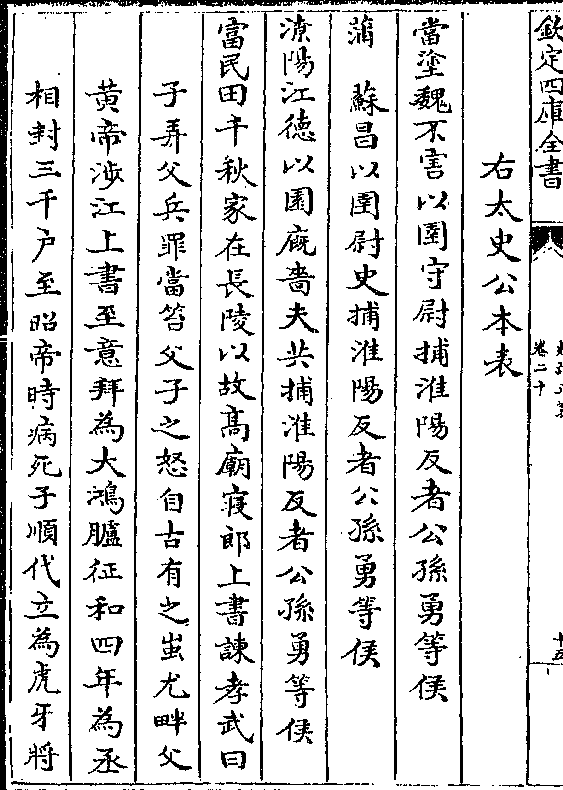 欽定四庫全書
卷二十
右太史公本表
當塗魏不害以圉守尉捕淮陽反者公孫勇等侯
蒲　蘇昌以圉尉史捕淮陽反者公孫勇等侯
潦陽江德以園廐嗇夫共捕淮陽反者公孫勇等侯
富民田千秋家在長陵以故髙廟寢郎上書諫孝武曰
子弄父兵罪當笞父子之怒自古有之蚩尤畔父
黄帝涉江上書至意拜為大鴻臚征和四年為丞
相封三千户至昭帝時病死子順代立為虎牙將